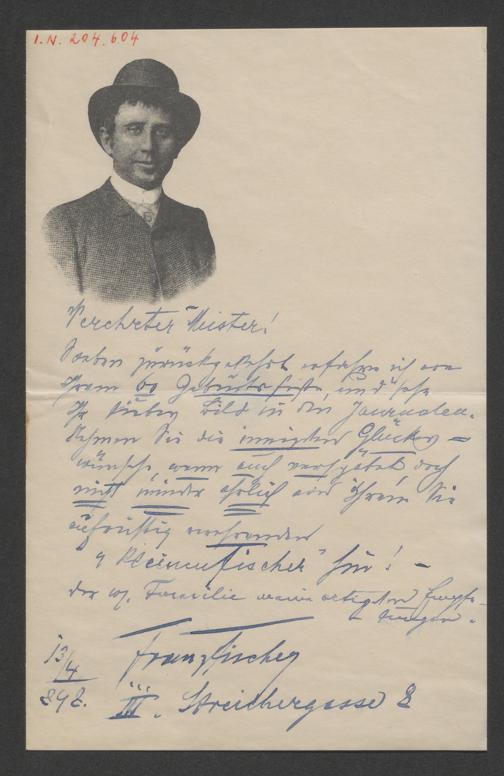 I.N. 204.604
Verehrter Meister!
Soeben zurückgekehrt erfahre ich von
Ihrem 60 Geburtsfeste, und sehe
Ihr liebes Bild in den Journalen.
Nehmen Sie die innigsten Glücks-
wünsche, wenn auch verspätet doch
nicht minder ehrlich von Ihrem Sie
aufrichtig verehrenden
"Kleinen Fischer" hin! –
der w. Familie meine artigsten Empfe-
lungen.
Franz Fischer
13/4
898.
III. Streichergasse 8